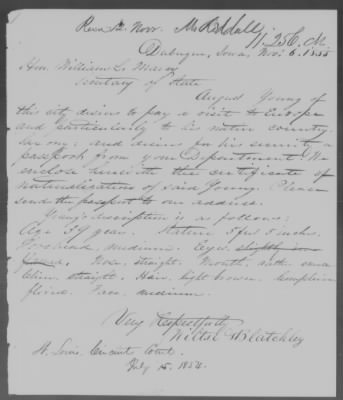 Recd 12 Novr. McK
Dubuque, Iowa, Nov: 6. 1855
Hon. William L. Marcy
Secretary of State
August Young of
this city desires to pay a visit to Europe
and particularly to his native country
and desires for his security a
passport from your Department. We
enclose herewith the certificate of
naturalization of said Young. Please
send the passport to our address.
Young's description is as follows:
Age 39 years. Stature 5 feet 5 inches.
Forehead, medium. Eyes,
Nose, straight. Mouth, with small
Chin, straight. Hair, light brown. Complexion
florid. Face, medium.
Very Respectfully
Wiltse & Blatchley
St. Louis, Circuit Court.
July 15. 1854.